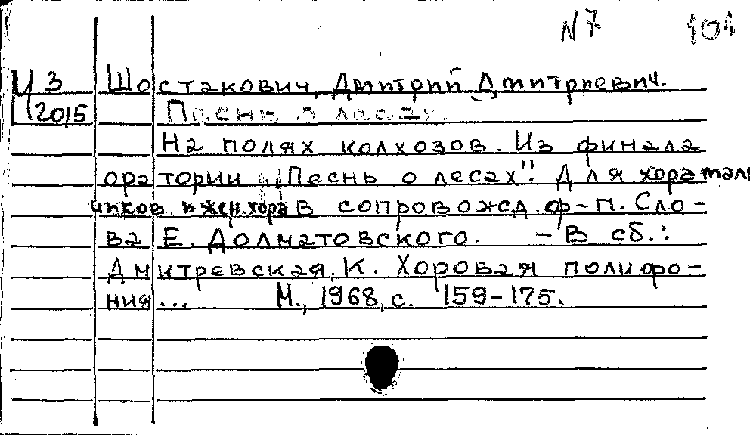 N 7 101
Ц 3 Шостакович, Дмитрий Дмитриевич.
2015 Песнь о лесах.
На полях колхозов. Из финала
оратории "Песнь о лесах". Для хора маль
чиков и жен. хора в сопровожд. ф-п. Сло-
ва Е. Долматовского. - В сб.:
Дмитревская, К. Хоровая полифо-
ния... М., 1968, с. 159-175.